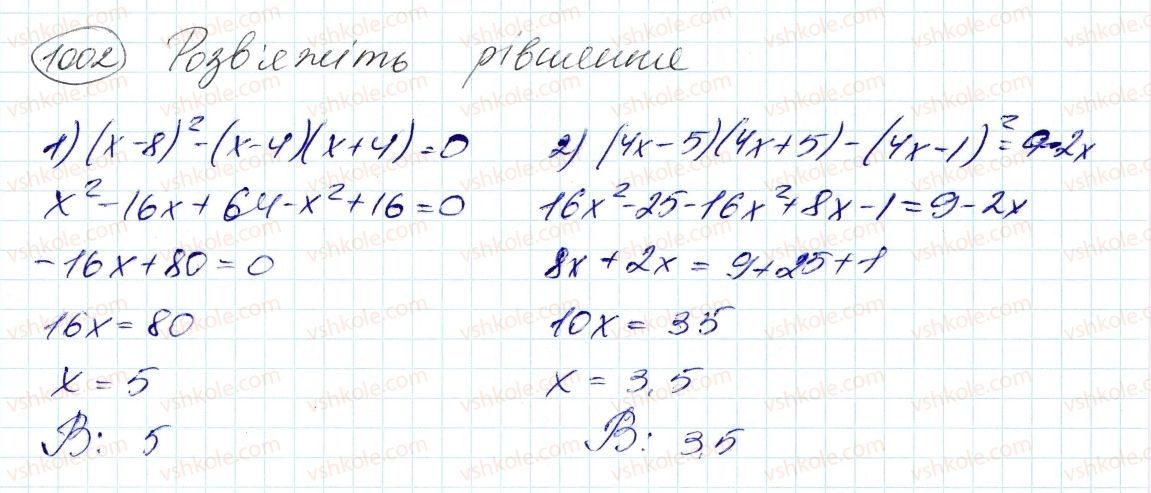 1002 Розв'яжіть рівняння
1) (x-8)²-(x-4)(x+4)=0
x²-16x+64-x²+16=0
-16x+80=0
16x=80
x=5
В: 5
2) (4x-5)(4x+5)-(4x-1)²=9-2x
16x²-25-16x²+8x-1=9-2x
8x+2x=9+25+1
10x=35
x=3,5
В: 3,5